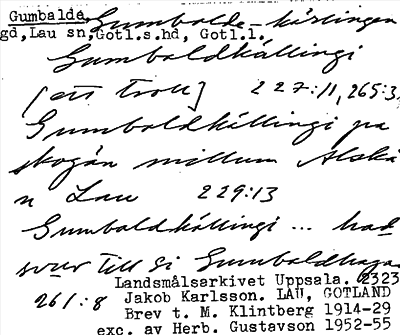 Gumbalde Gumbalde-kärlingen
gd, Lau sn, Gotl.s.hd, Gotl.l.
Gumboldkällingi
[ett troll] 227:11, 265:3,
Gumboldkällingi pa
skogän millum Alskä
n Lau 229:13
Gumboldkällingi ... had
svur till si Gumboldhagan
Landsmålsarkivet Uppsala. 2323
261:8 Jakob Karlsson. LAU, GOTLAND
Brev t. M. Klintberg 1914-29
exc. av Herb. Gustavson 1952-55